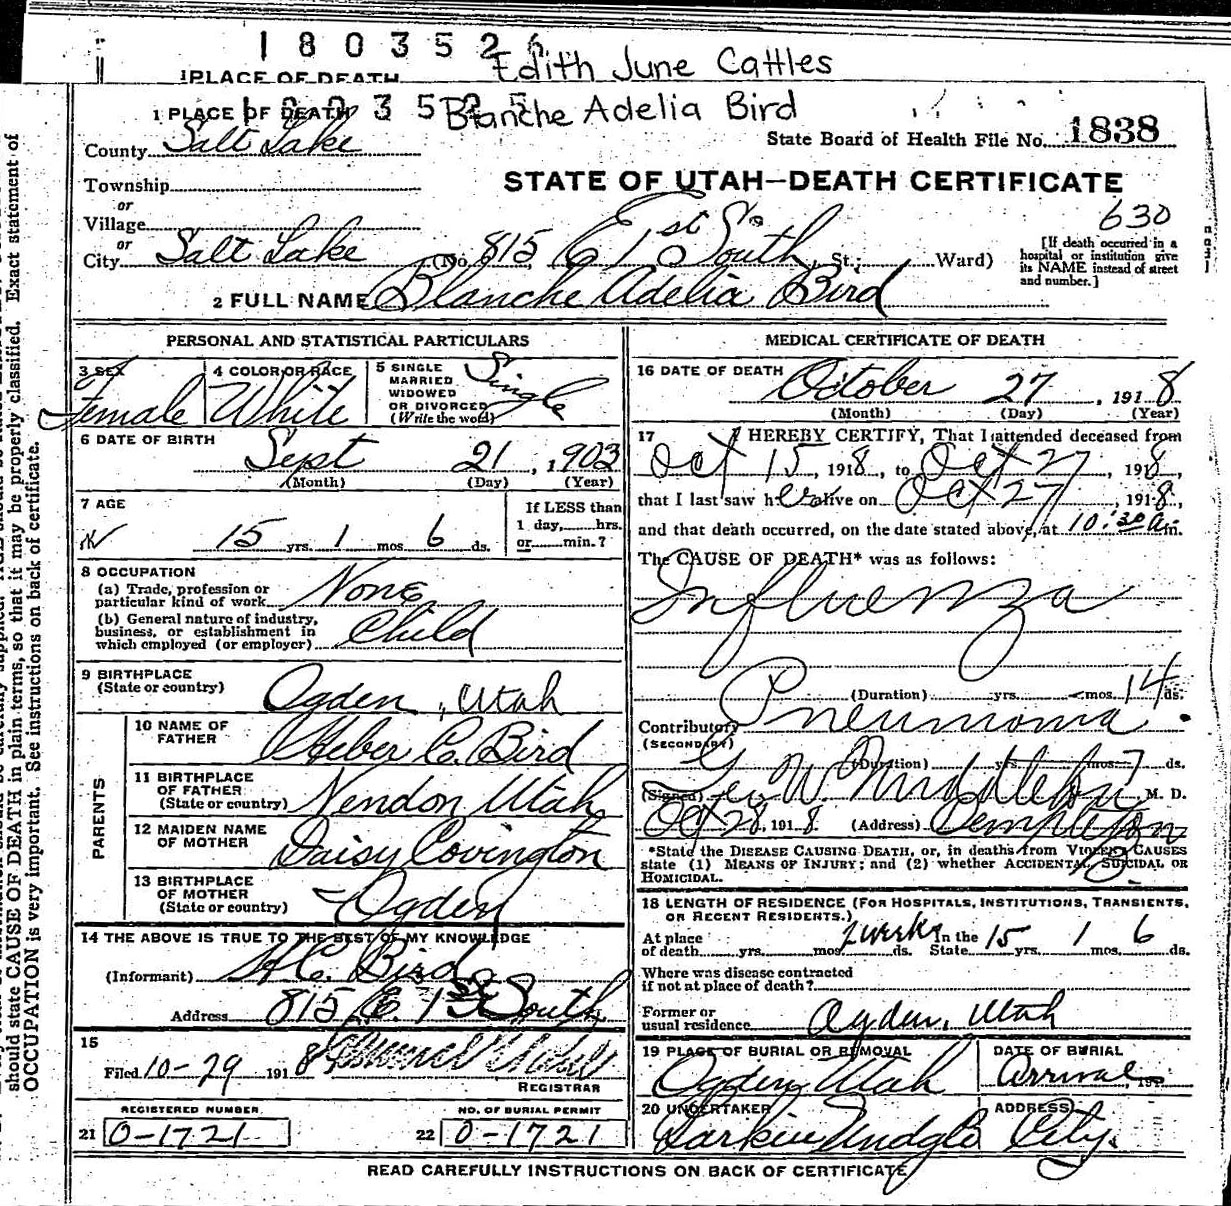 1803526
Edith June Cattles
1 PLACE OF DEATH
1 PLACE OF DEATH
Blanche Adelia Bird
County Salt Lake
State Board of Health File No. 1838
Township
STATE OF UTAH—DEATH CERTIFICATE
or
Village
630
or
City Salt Lake (No. 815 E 1st So South St.; Ward)
[If death occurred in a hospital or institution give its NAME instead of street and number.]
2 FULL NAME Blanche Adelia Bird
PERSONAL AND STATISTICAL PARTICULARS
3 SEX Female
4 COLOR OR RACE White
5 SINGLE MARRIED WIDOWED OR DIVORCED (Write the word) Single
6 DATE OF BIRTH
Sept 21, 1903
(Month) (Day) (Year)
7 AGE
15 yrs. 1 mos. 6 ds.
If LESS than 1 day, hrs. or min.?
8 OCCUPATION
(a) Trade, profession or particular kind of work None
(b) General nature of industry, business, or establishment in which employed (or employer) Child
9 BIRTHPLACE
(State or country) Ogden, Utah
PARENTS
10 NAME OF FATHER Heber C. Bird
11 BIRTHPLACE OF FATHER (State or country) Nendon Utah
12 MAIDEN NAME OF MOTHER Daisy Covington
13 BIRTHPLACE OF MOTHER (State or country) Ogden
14 THE ABOVE IS TRUE TO THE BEST OF MY KNOWLEDGE
(Informant) H.C. Bird
Address 815 E. 1st South
15
Filed 10-29 1918
REGISTRAR
REGISTERED NUMBER
21 0-1721
NO. OF BURIAL PERMIT
22 0-1721
MEDICAL CERTIFICATE OF DEATH
16 DATE OF DEATH October 27, 1918
(Month) (Day) (Year)
17 I HEREBY CERTIFY, That I attended deceased from
Oct 15, 1918, to Oct 27, 1918,
that I last saw her alive on Oct 27, 1918,
and that death occurred, on the date stated above, at 10:30 a.m.
The CAUSE OF DEATH* was as follows:
Influenza
(Duration) yrs. mos. 14 ds.
Contributory Pneumonia
(SECONDARY)
(Duration) yrs. mos. 7 ds.
(Signed) Geo W Middleton M. D.
Oct 28, 1918 (Address) Templeton B.
*State the DISEASE CAUSING DEATH, or, in deaths from VIOLENT CAUSES
state (1) MEANS OF INJURY; and (2) whether ACCIDENTAL, SUICIDAL OR
HOMICIDAL.
18 LENGTH OF RESIDENCE (FOR HOSPITALS, INSTITUTIONS, TRANSIENTS,
OR RECENT RESIDENTS.)
At place of death yrs. mos. 2 weeks ds. In the State 15 yrs. 1 mos. 6 ds.
Where was disease contracted
if not at place of death?
Former or
usual residence Ogden, Utah
19 PLACE OF BURIAL OR REMOVAL
Ogden Utah
DATE OF BURIAL
Arrival
20 UNDERTAKER
Larkin Undg Co
ADDRESS
City.
READ CAREFULLY INSTRUCTIONS ON BACK OF CERTIFICATE
should state CAUSE OF DEATH in plain terms, so that it may be properly classified. Exact statement of
OCCUPATION is very important. See instructions on back of certificate.